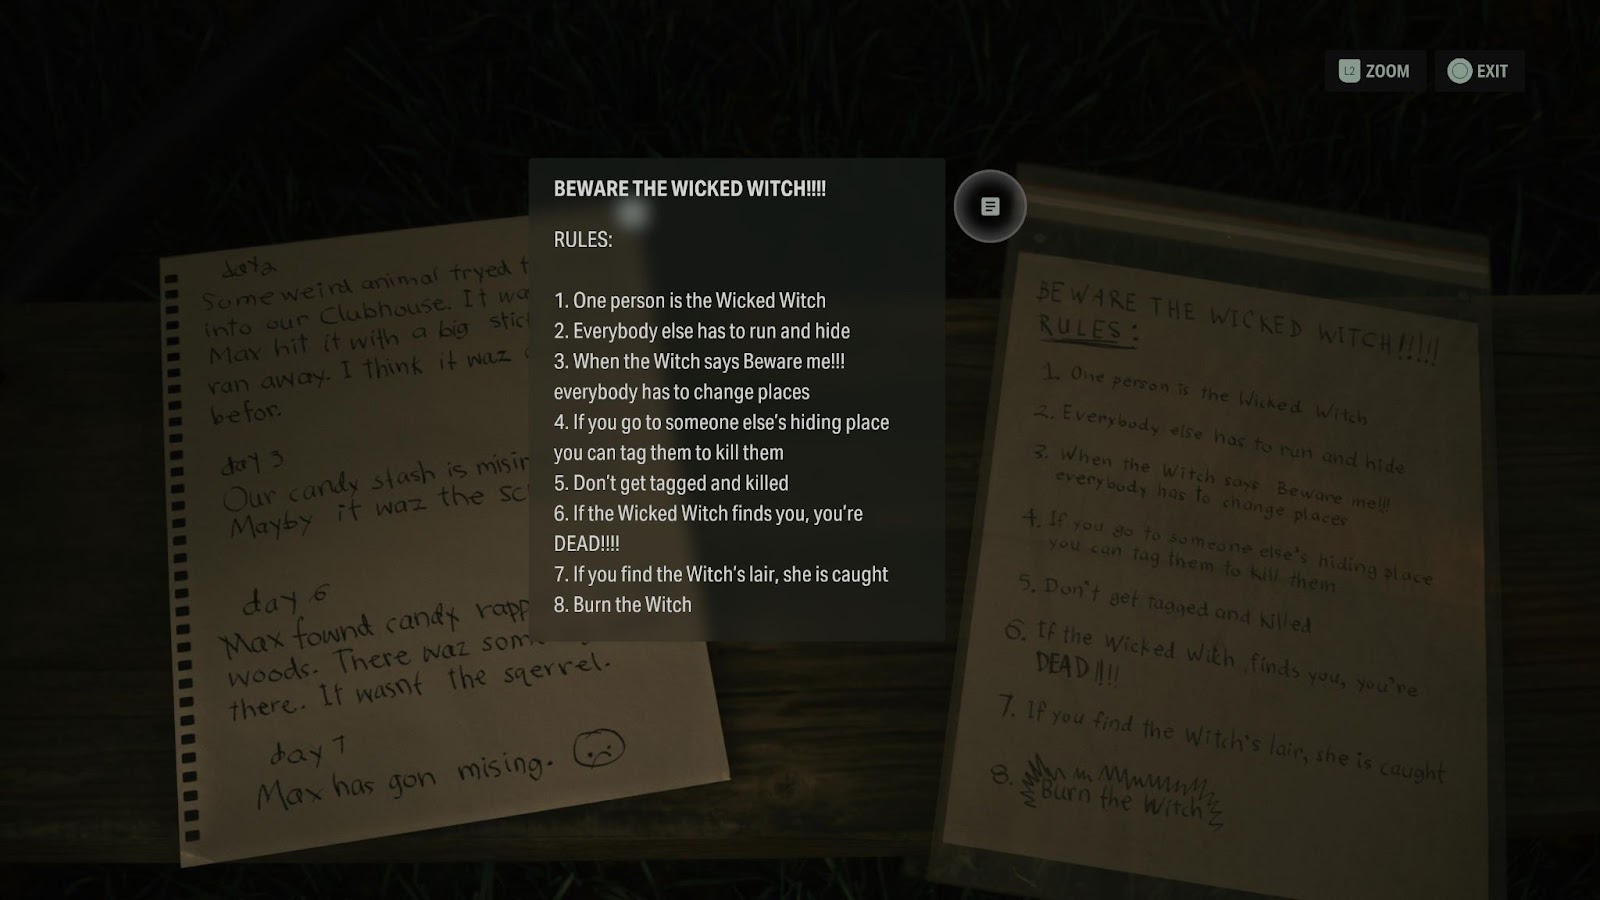 L2 ZOOM
EXIT
BEWARE THE WICKED WITCH!!!!
RULES:
1. One person is the Wicked Witch
2. Everybody else has to run and hide
3. When the Witch says Beware me!!!
everybody has to change places
4. If you go to someone else's hiding place
you can tag them to kill them
5. Don't get tagged and killed
6. If the Wicked Witch finds you, you're
DEAD!!!!
7. If you find the Witch's lair, she is caught
8. Burn the Witch
day 2
Some weird animal tryed
into our Clubhouse. It
Max hit it with a big
ran away. I think it waz
befor.
day 3
Our candy stash is
Mayby it waz the
day 6
Max fownd candy
woods. There waz
there. It wasnt the sqerrel.
day 7
Max has gon mising.
BEWARE THE WICKED WITCH!!!!!
RULES:
1. One person is the Wicked Witch
2. Everybody else has to run and hide
3. When the Witch says Beware me!!!
everybody has to change places
4. If you go to someone else's hiding place
you can tag them to kill them
5. Don't get tagged and killed
6. If the Wicked Witch finds you, you're
DEAD!!!!
7. If you find the Witch's lair, she is caught
8.
Burn the Witch